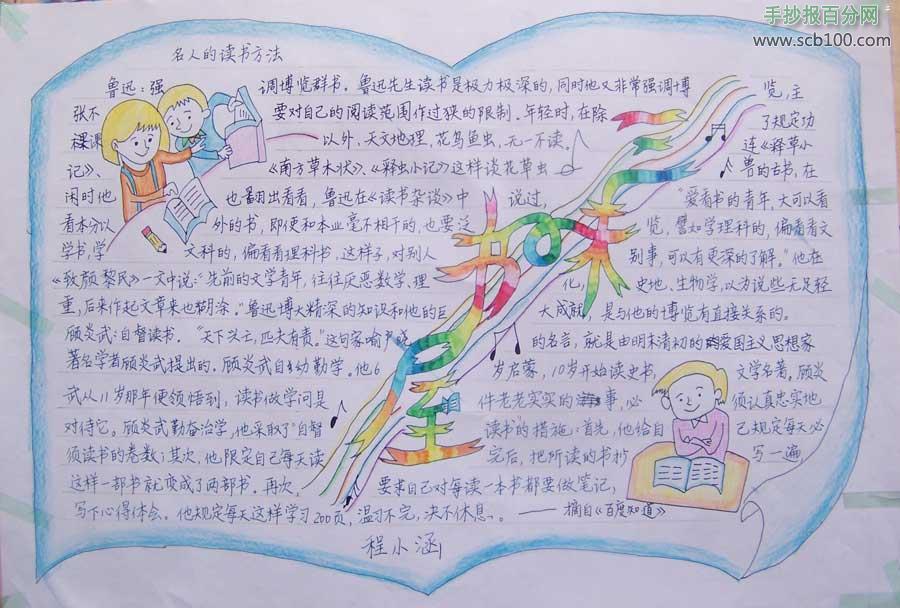 手抄报百分网
www.scb100.com
名人的读书方法
鲁迅：强 调博览群书。鲁迅先生读书是极力极深的，同时他又非常强调博 览，主
张不 要对自己的阅读范围作过狭的限制。年轻时，在除 了规定功
课 以外，天文地理，花鸟鱼虫，无一不读。 连《释草小
记》、 《南方草木状》、《释虫小记》这样谈花草虫 兽的古书，在
闲时他 也翻出看看，鲁迅在《读书杂谈》中 说过， "爱看书的青年，大可以看
看本分以 外的书，即使和本业毫不相干的，也要泛 览，譬如学理科的，偏看看文
学书，学 文科的，偏看看理科书，这样子，对别人 别事，可以有更深的了解。"他在
《致颜黎民》一文中说："先前的文学青年，往往厌恶数学，理 化， 史地，生物学，以为说些无足轻
重，后来作起文章来也糊涂。"鲁迅博大精深的知识和他的巨 大成就，是与他的博览有直接关系的。
顾炎武：自督读书。 "天下兴亡，匹夫有责。"这句家喻户晓 的名言，就是由明末清初的爱国主义思想家
著名学者顾炎武提出的。顾炎武自幼勤学。他6 岁启蒙，10岁开始读史书， 文学名著。顾炎
武从11岁那年便领悟到，读书做学问是 件老老实实的事，必 须认真忠实地
对待它。顾炎武勤奋治学，他采取了"自督 读书"的措施：首先，他给自 己规定每天必
须读书的卷数；其次，他限定自己每天读 完后，把所读的书抄 写一遍
这样一部书就变成了两部书。再次， 要求自己对每读一本书都要做笔记，
写下心得体会。他规定每天这样学习200页，温习不完，决不休息。——摘自《百度知道》
书的
圣
程小涵